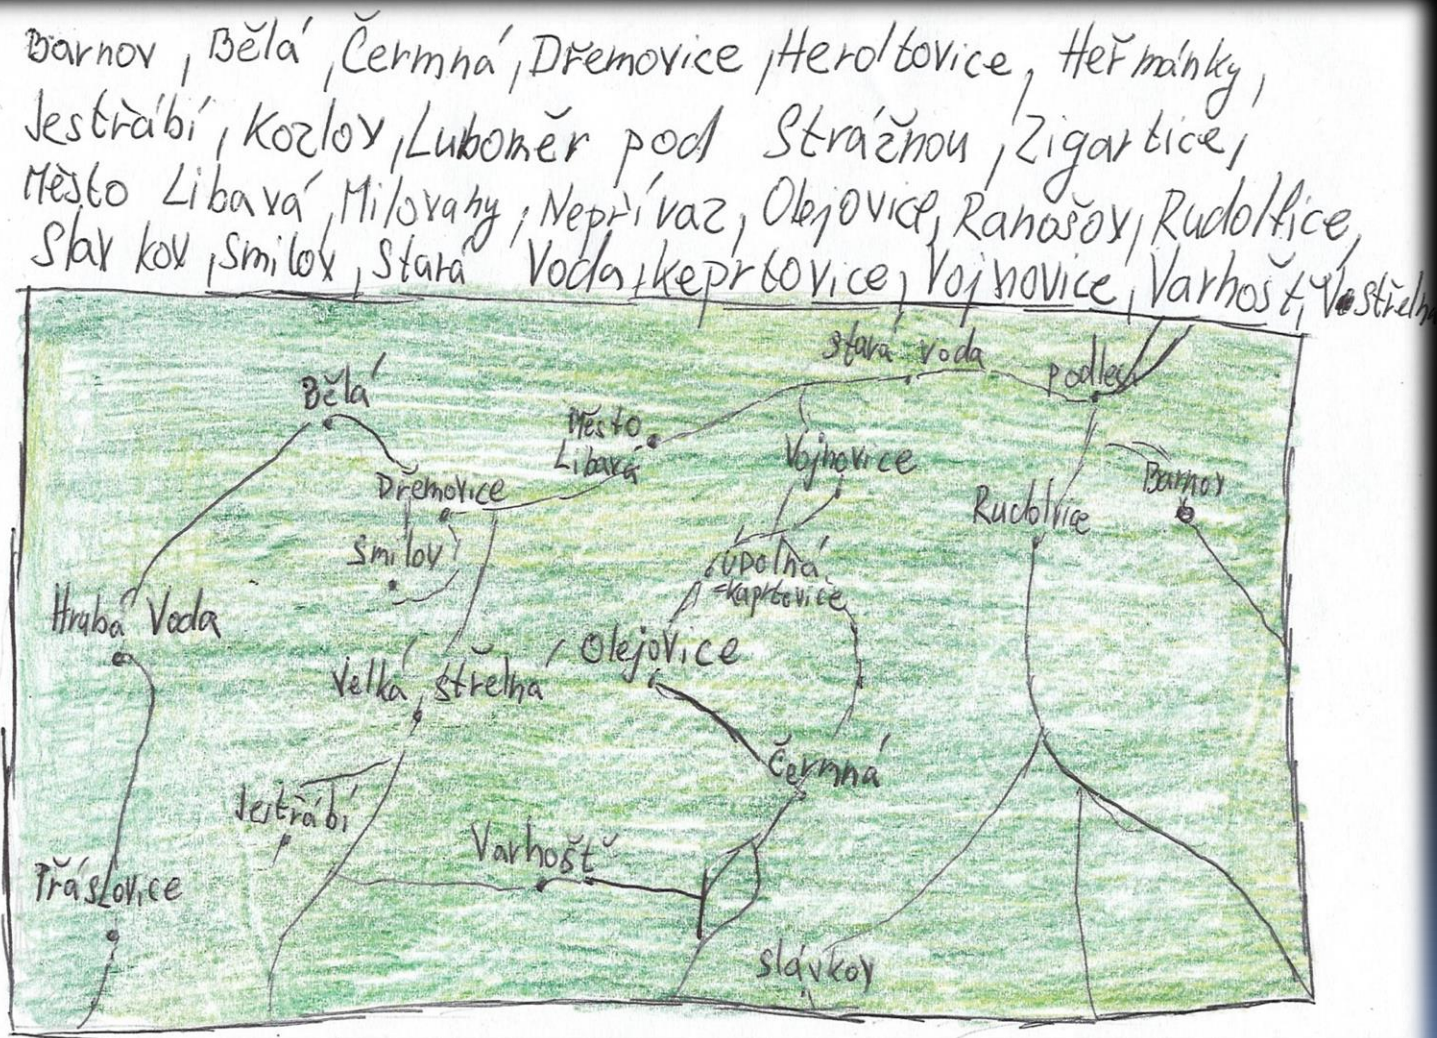 Barnov, Bělá, Čermná, Dřemovice, Heroltovice, Heřmánky,
Jestřábí, Kozlov, Luboměr pod Strážnou, Zigartice,
Město Libavá, Milovany, Nepřívaz, Olejovice, Ranošov, Rudoltice,
Slav kov, Smilov, Stará Voda, keprtovice, Vojnovice, Varhošť,
Stará voda
Podlesí
Bělá
Město
Libavá
Vojnovice
Barnov
Dřemovice
Rudoltice
Smilov
úpolná
=kaprtovice
Hrubá Voda
Olejovice
Velká střelná
Čermná
Jestřábí
Varhošť
Přáslovice
slávkov